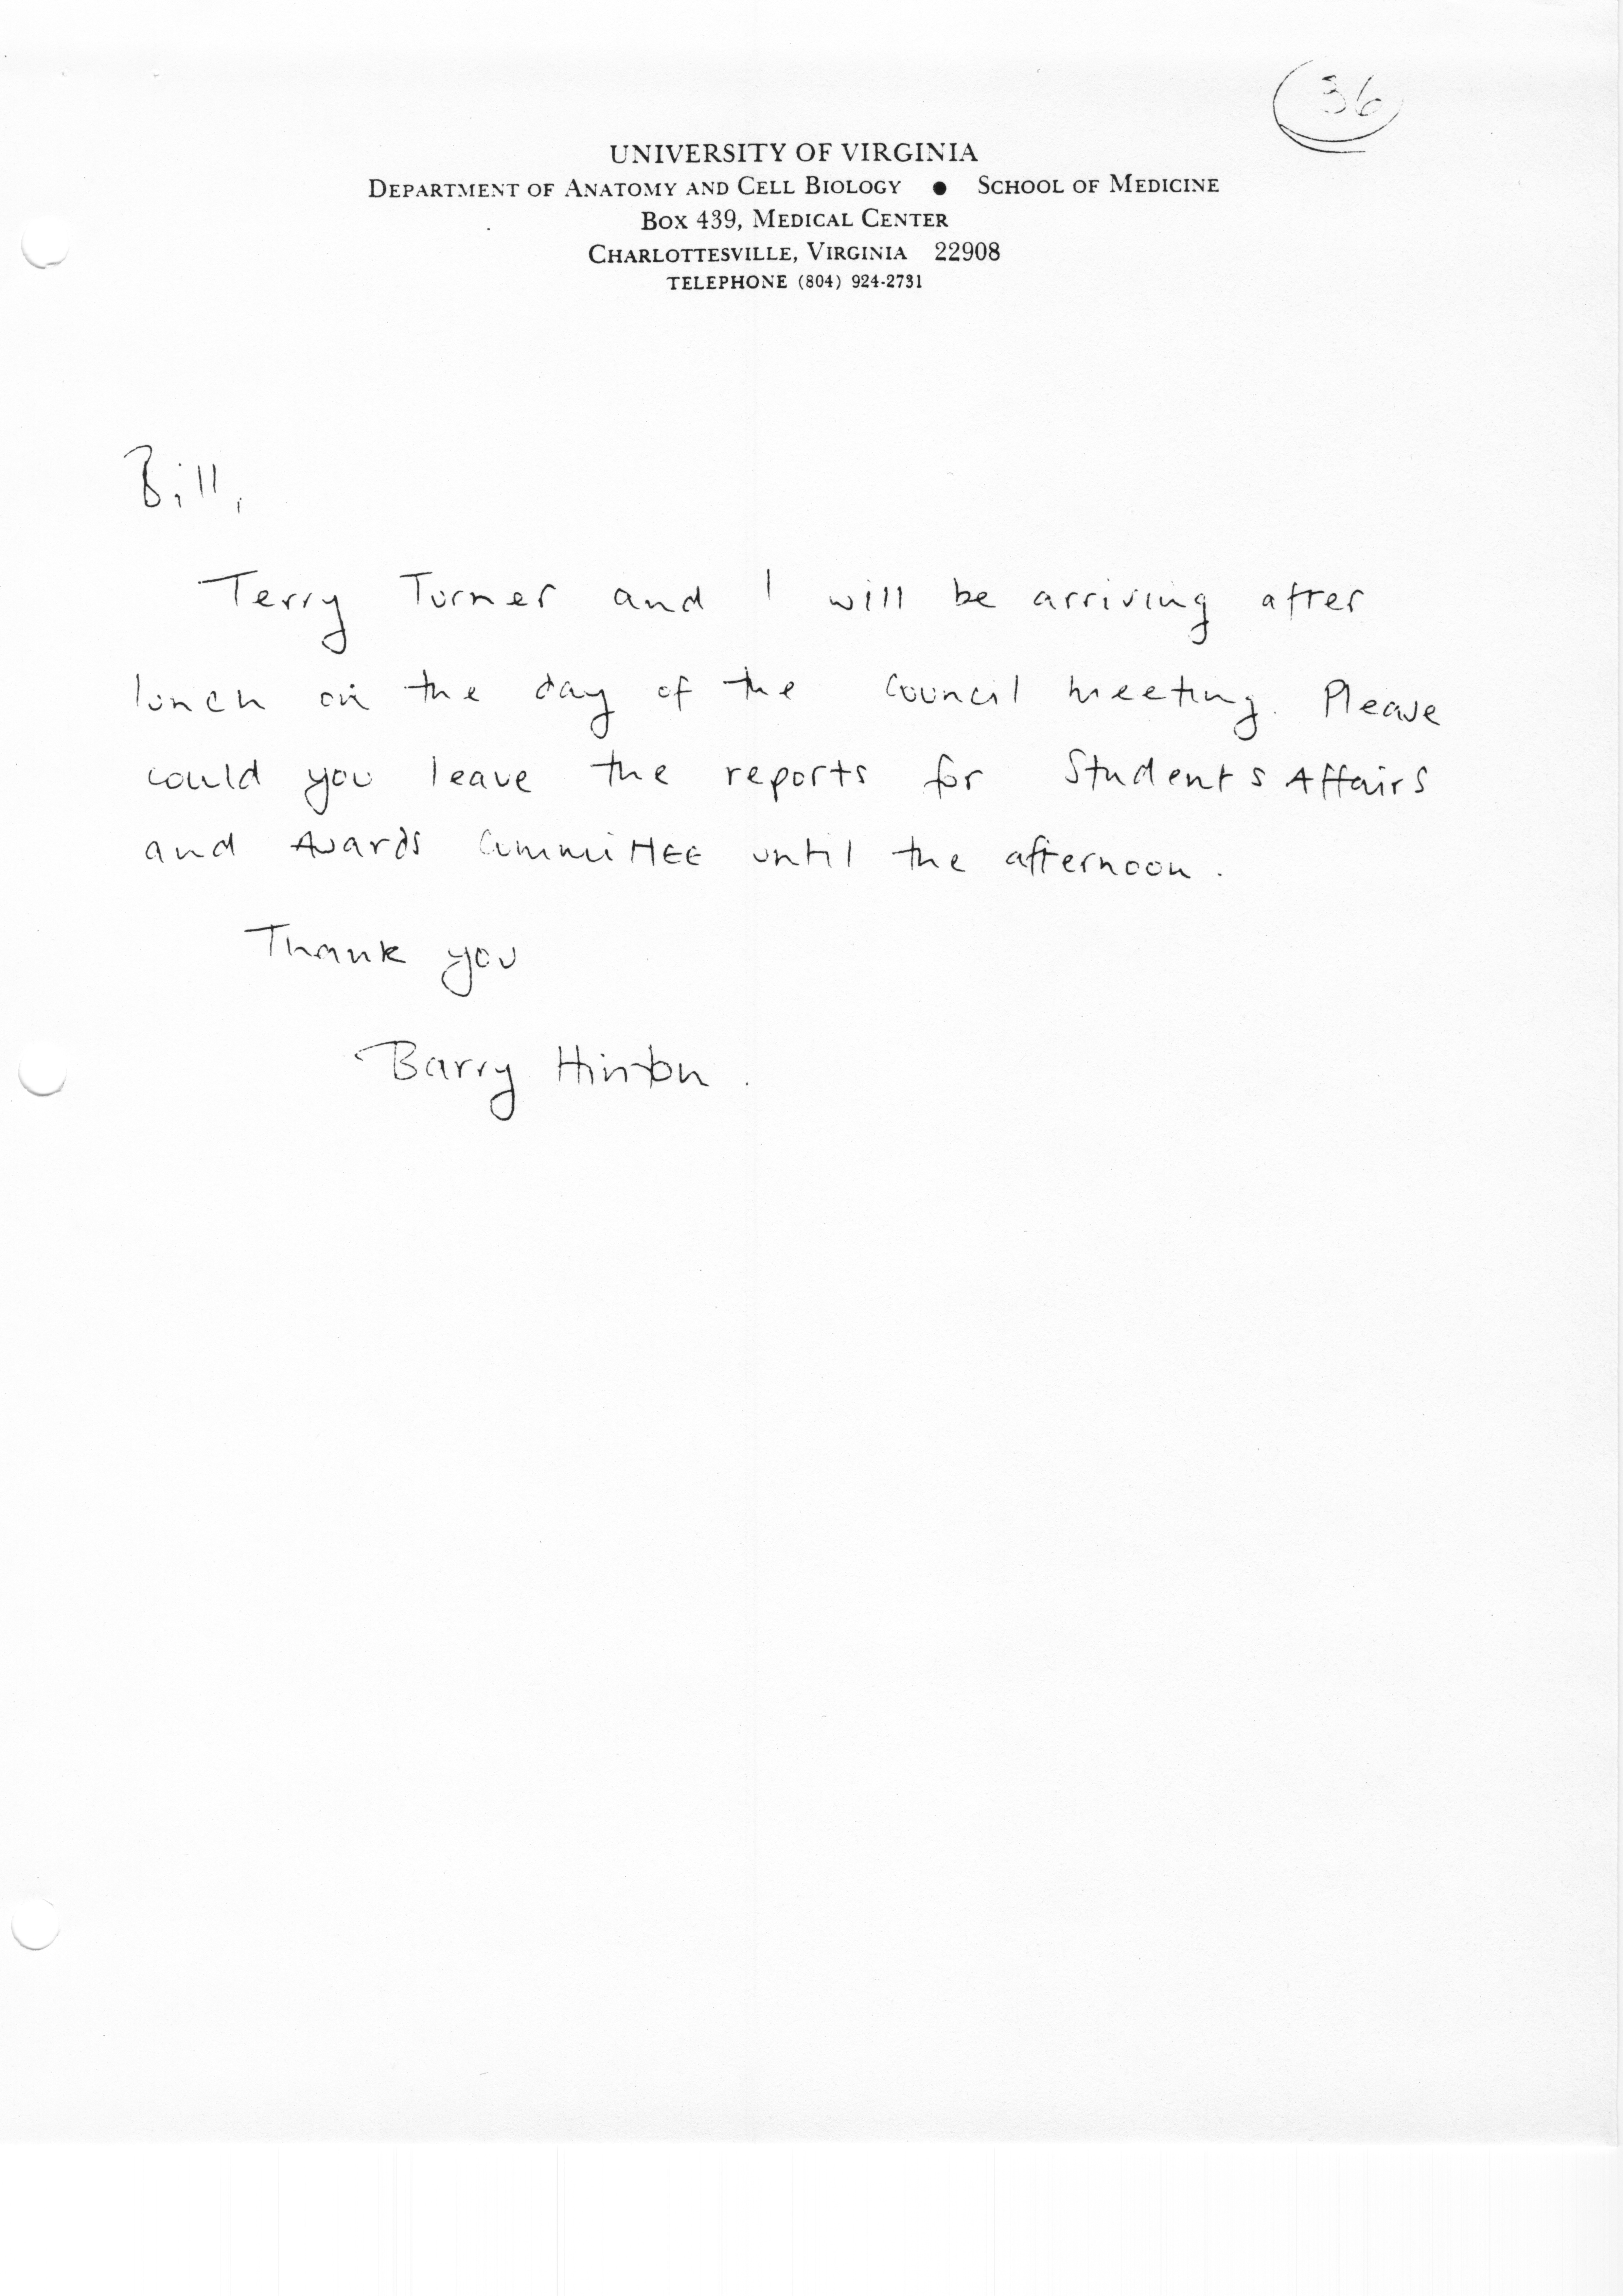 36
UNIVERSITY OF VIRGINIA
DEPARTMENT OF ANATOMY AND CELL BIOLOGY ● SCHOOL OF MEDICINE
BOX 439, MEDICAL CENTER
CHARLOTTESVILLE, VIRGINIA 22908
TELEPHONE (804) 924-2731
Bill,
Terry Turner and I will be arriving after
lunch on the day of the Council meeting. Please
could you leave the reports for Students Affairs
and Awards Committee until the afternoon.
Thank you
Barry Hinton.